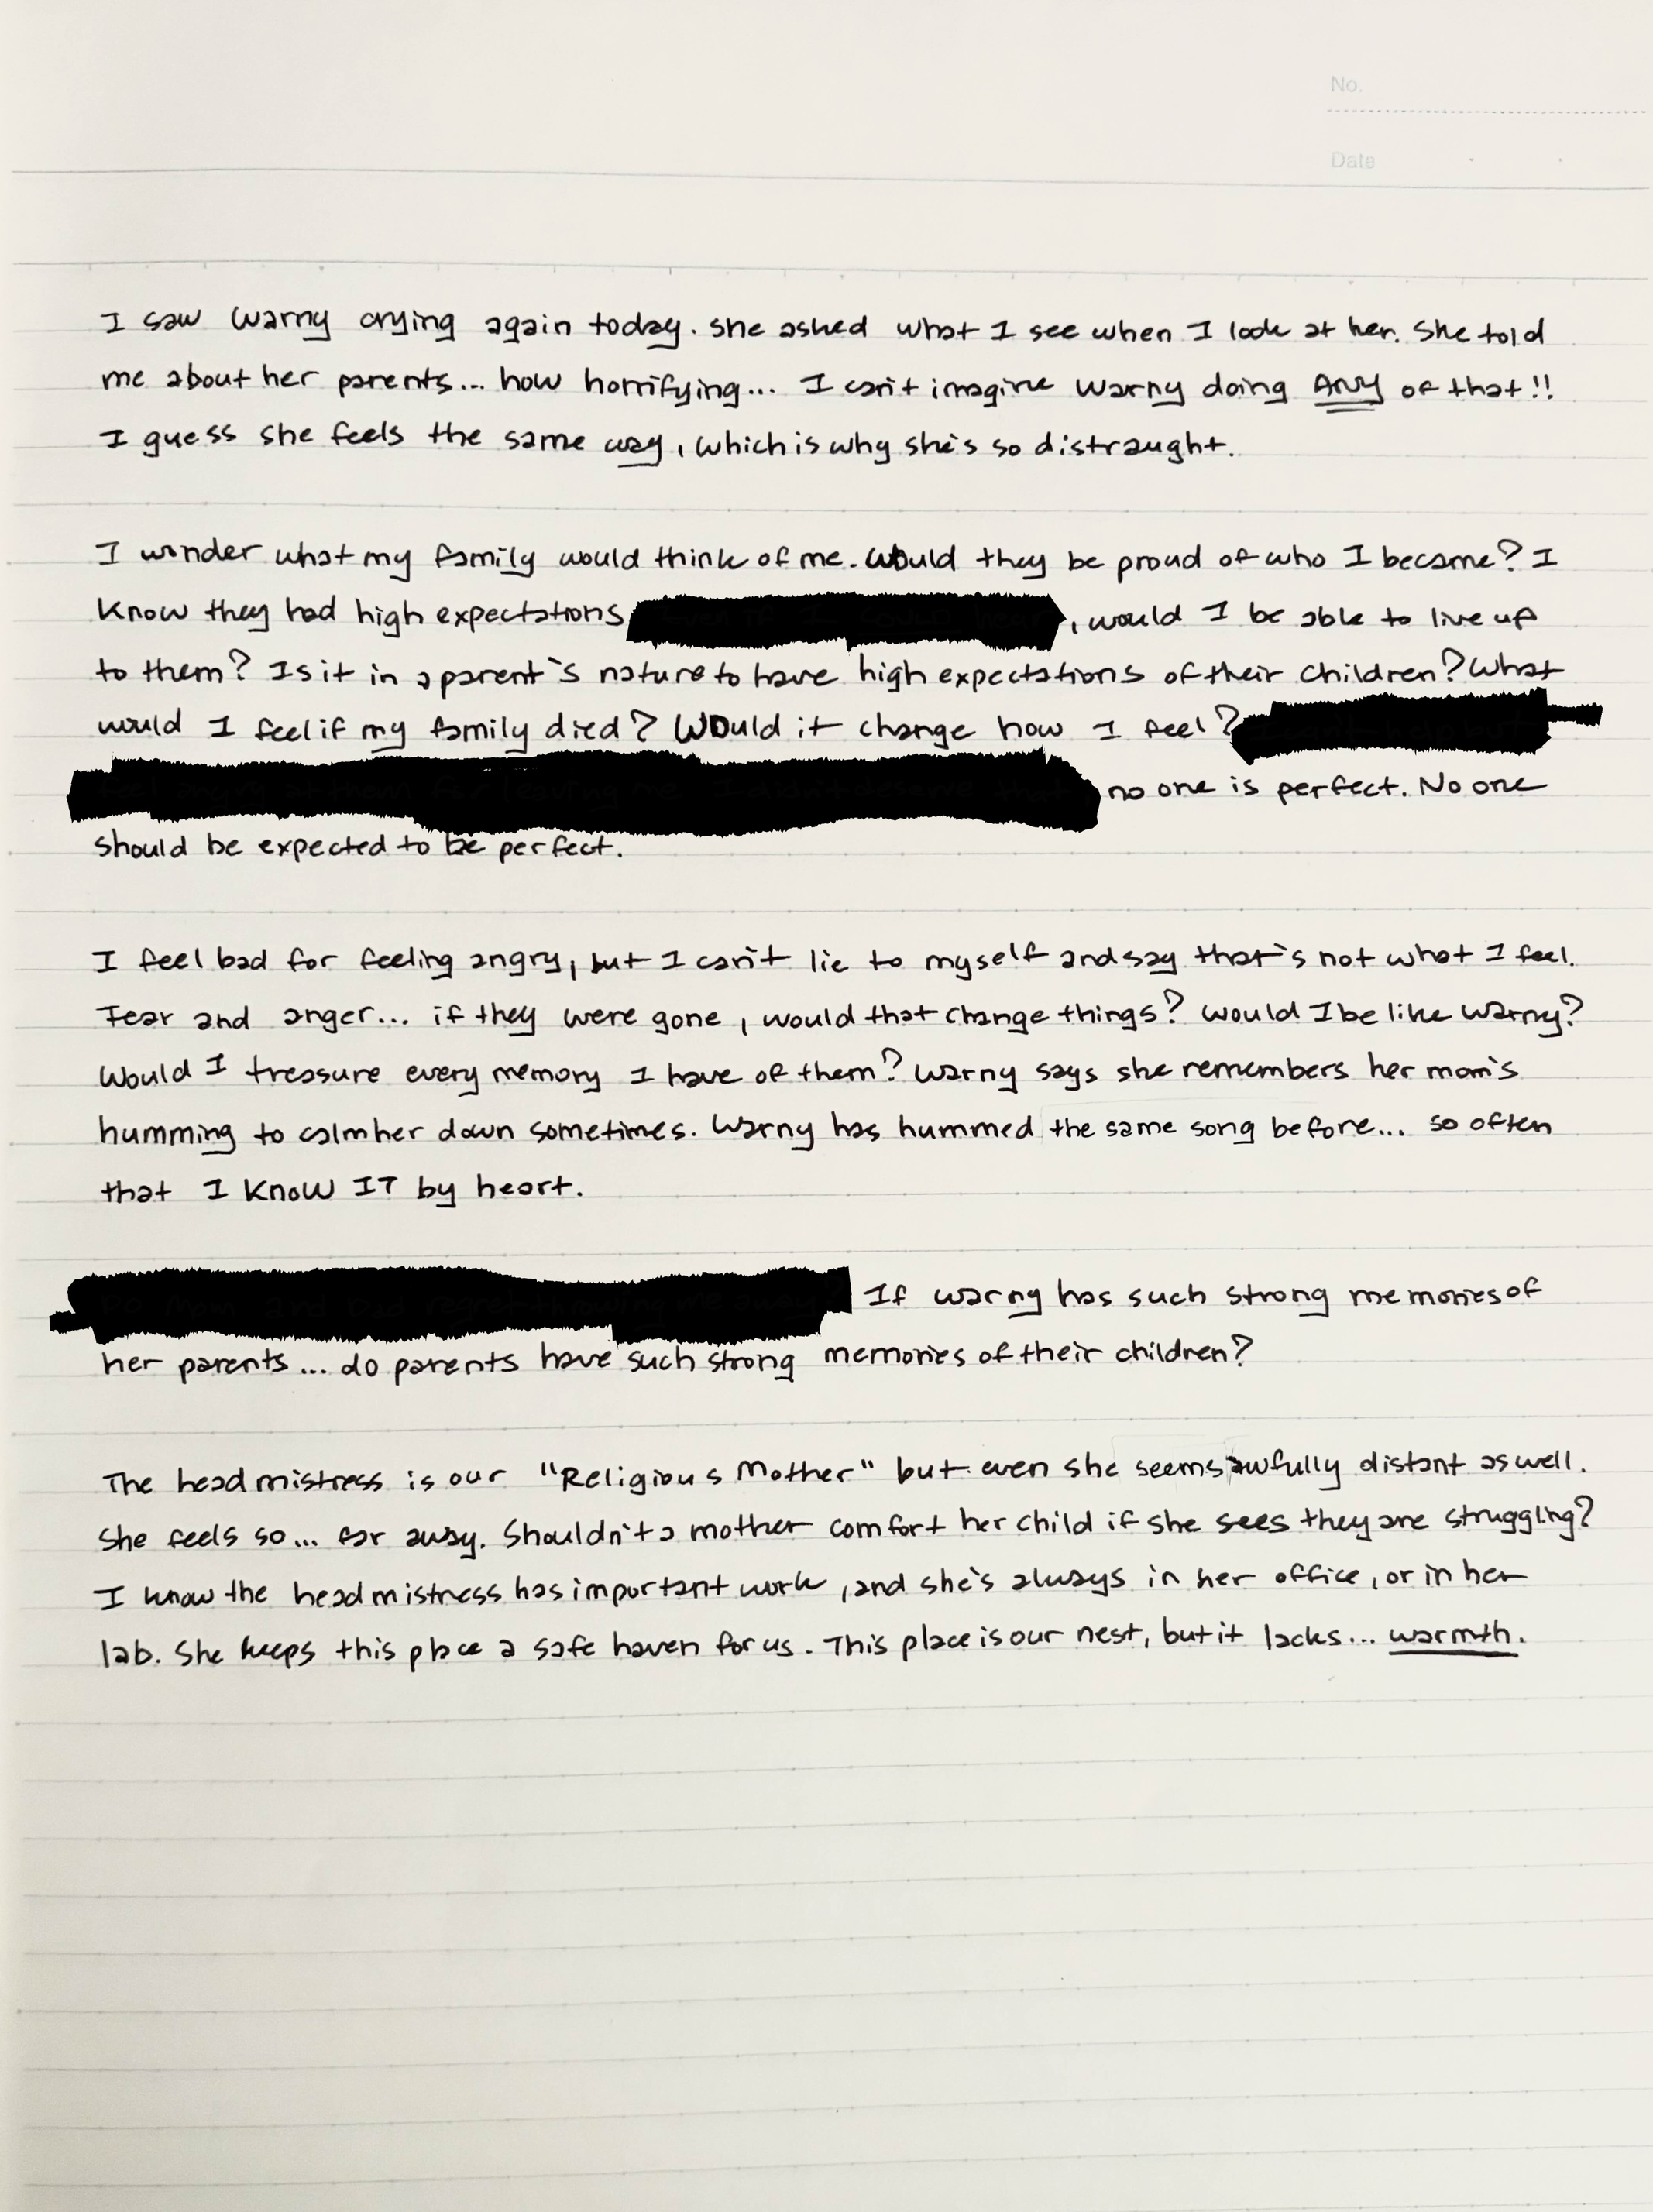 No.
Date
I saw Warny crying again today. She asked what I see when I look at her. She told
me about her parents... how horrifying... I can't imagine Warny doing ANY of that!!
I guess she feels the same way, which is why she's so distraught.
I wonder what my family would think of me. Would they be proud of who I became? I
know they had high expectations , would I be able to live up
to them? Is it in a parent's nature to have high expectations of their children? What
would I feel if my family died? Would it change how I feel?
no one is perfect. No one
should be expected to be perfect.
I feel bad for feeling angry, but I can't lie to myself and say that's not what I feel.
Fear and anger... if they were gone, would that change things? Would I be like Warny?
Would I treasure every memory I have of them? Warny says she remembers her mom's
humming to calm her down sometimes. Warny has hummed the same song before... so often
that I KNOW IT by heart.
If Warny has such strong memories of
her parents... do parents have such strong memories of their children?
The headmistress is our "Religious Mother" but even she seems awfully distant as well.
She feels so... far away. Shouldn't a mother comfort her child if she sees they are struggling?
I know the headmistress has important work, and she's always in her office, or in her
lab. She keeps this place a safe haven for us. This place is our nest, but it lacks... warmth.